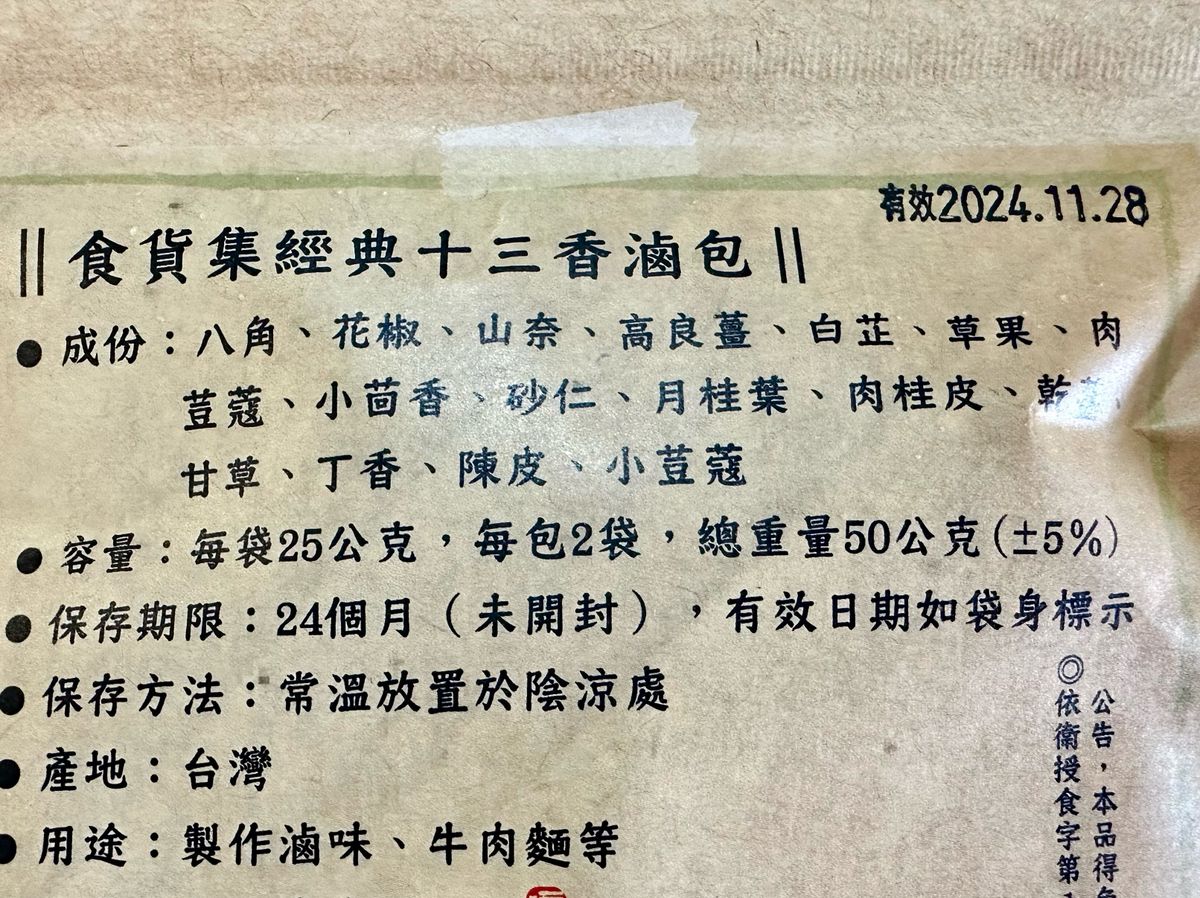 有效2024.11.28
||食貨集經典十三香滷包||
● 成份：八角、花椒、山奈、高良薑、白芷、草果、肉
荳蔻、小茴香、砂仁、月桂葉、肉桂皮、乾
甘草、丁香、陳皮、小荳蔻
● 容量：每袋25公克，每包2袋，總重量50公克(±5%)
● 保存期限：24個月（未開封），有效日期如袋身標示
● 保存方法：常溫放置於陰涼處
● 產地：台灣
● 用途：製作滷味、牛肉麵等
公告，本品得免
◎依衛授食字第